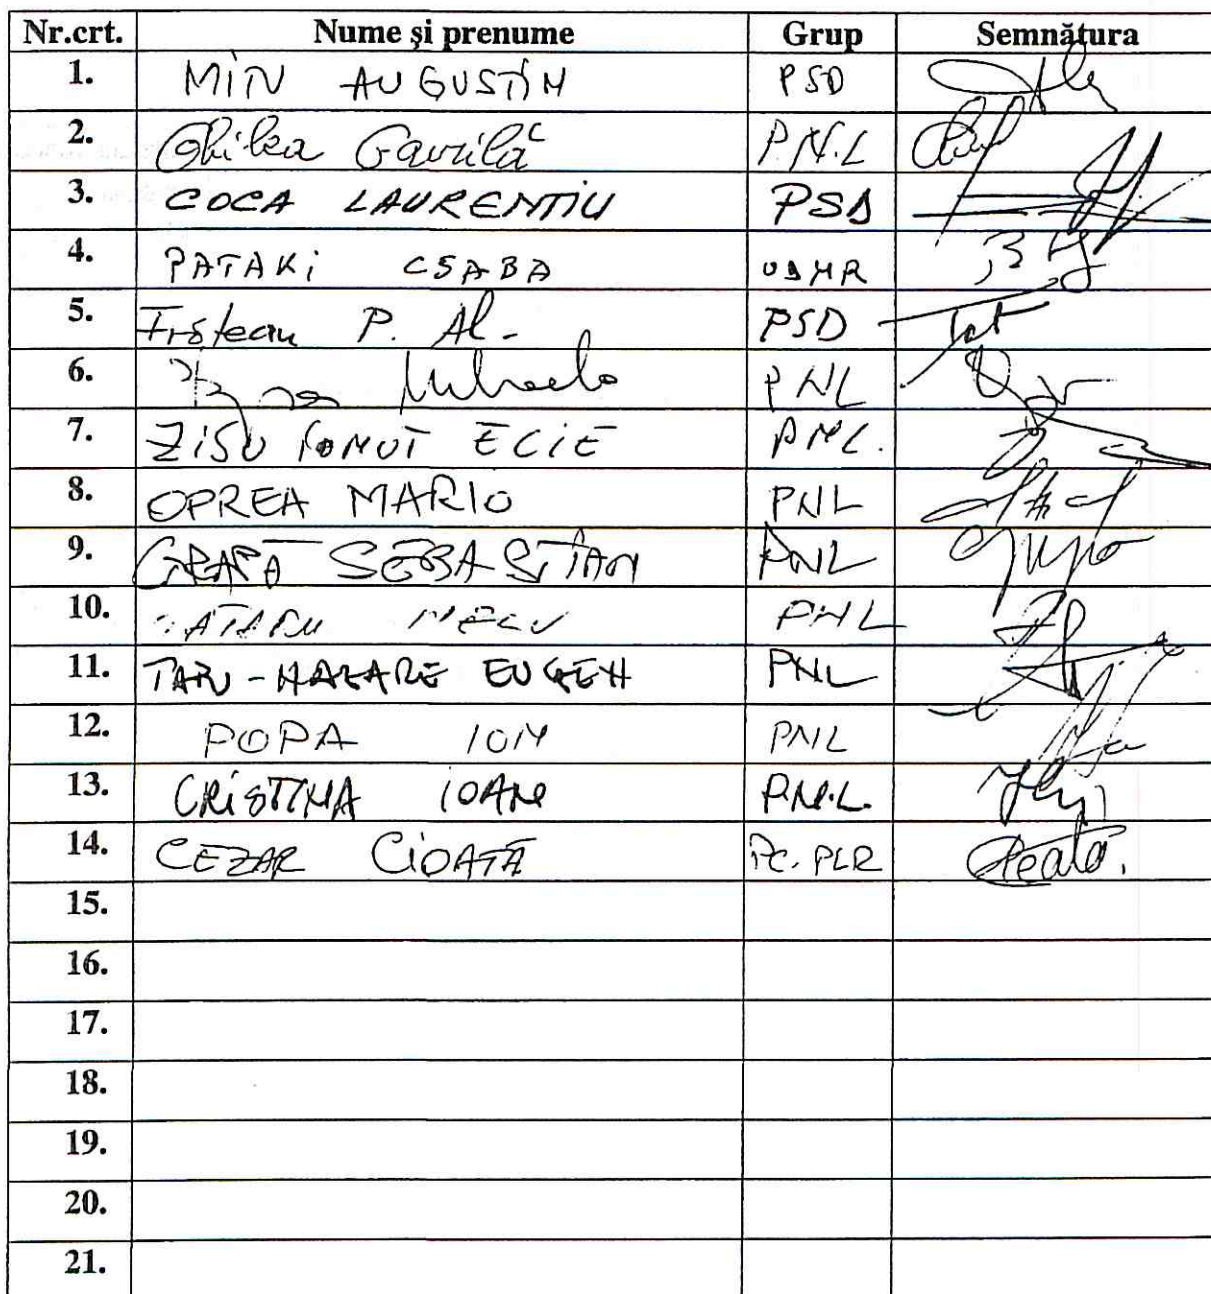 Nr.crt. Nume și prenume Grup Semnătura
1. MIN AUGUSTIN PSD
2. Ghilea Gavrilă P.N.L
3. COCA LAURENTIU PSD
4. PATAKi CSABA UDMR
5. P. Al- PSD
6. Mihaela PNL
7. ZiSU IONUT PNL.
8. OPREA MARIO PNL
9. GRAPĂ SEBASTIAN PNL
10. NELU PNL
11. EUGEN PNL
12. POPA ION PNL
13. CRiSTINA IOAN P.N.L.
14. CEZAR CiOATĂ PC-PLR
15.
16.
17.
18.
19.
20.
21.